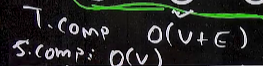 T.comp O(V+E)
S.comp: O(V)